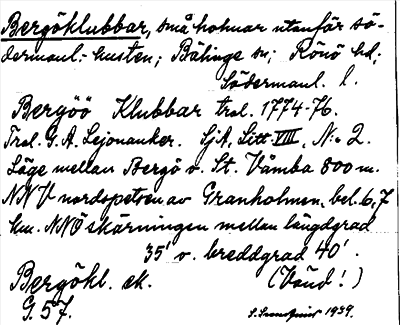 Bergöklubbar, små holmar utanför sö-
dermanl.-kusten; Bälinge sn; Rönö hd;
Södermanl. l.
Bergöö Klubbar trol. 1774-76.
Trol. G. A. Lejonanker. SjA, Litt VIII, N:o 2.
Läge mellan Bergö o. St. Vämba 800 m.
NNV nordspetsen av Granholmen, bel. 6,7
km. NNÖ skärningen mellan längdgrad
35' o. breddgrad 40'.
Bergökl. ek. (Vänd!)
G. 57. 1939.